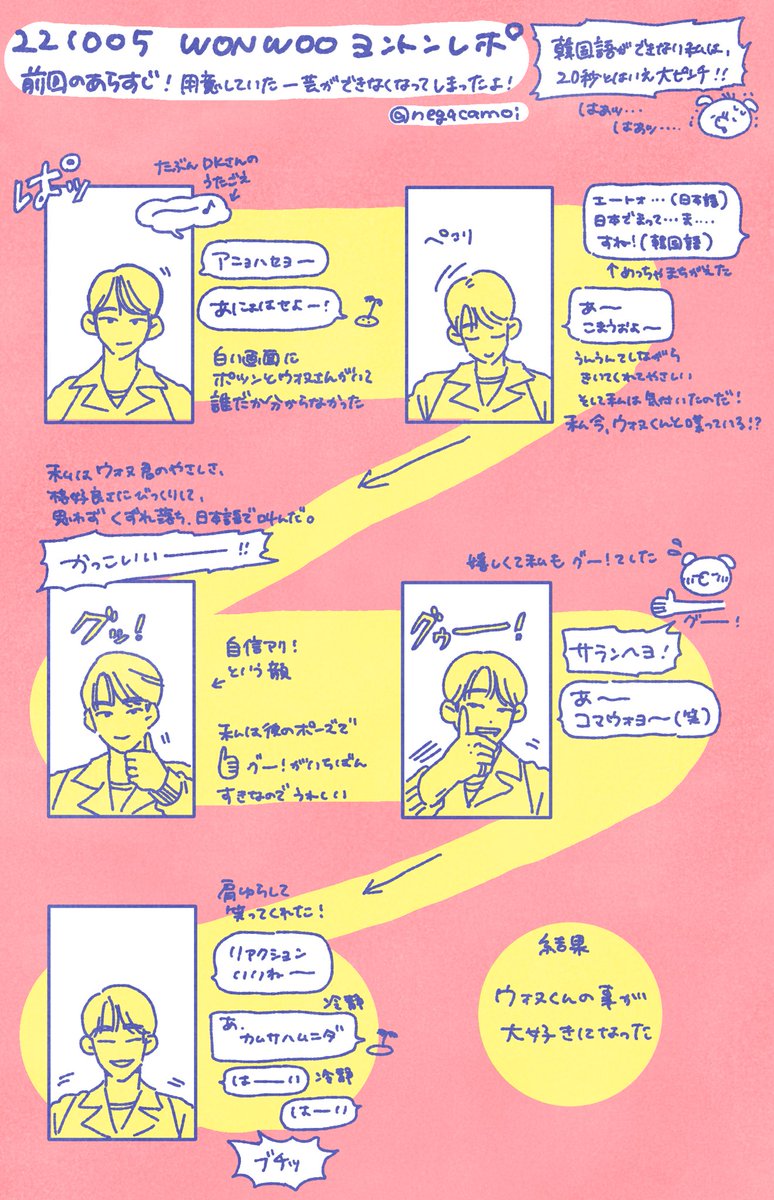 221005 WONWOO ヨントンレポ
前回のあらすじ！用意していた一芸ができなくなってしまったよ！
@negacamoi
韓国語ができない私は、
20秒とはいえ大ピンチ!!
はぁッ…
はぁッ….
ぱッ
たぶんDKさんの
うたごえ
アニョハセヨー
あにょはせよー!
白い画面に
ポツンとウォヌさんがいて
誰だか分からなかった
ペコリ
エートォ…(日本語)
日本でまって…ま….
すね!(韓国語)
↑めっちゃまちがえた
あ〜
こまうぉよ〜
うんうんてしながら
きいてくれてやさしい
そして私は気付いたのだ!
私今、ウォヌくんと喋っている!?
私はウォヌ君のやさしさ、
格好良さにびっくりして、
思わずくずれ落ち、日本語で叫んだ。
かっこいいー!!
グッ!
自信アリ!
という顔
私は彼のポーズで
グー!がいちばん
すきなのでうれしい
嬉しくて私もグー!てした
グー!
グゥー!
サランヘヨ!
あ〜
コマウォヨ〜(笑)
肩ゆらして
笑ってくれた!
リアクション
いいね〜
冷静
あ、
カムサハムニダ
はーい
冷静
はーい
ブチッ
結果
ウォヌくんの事が
大好きになった